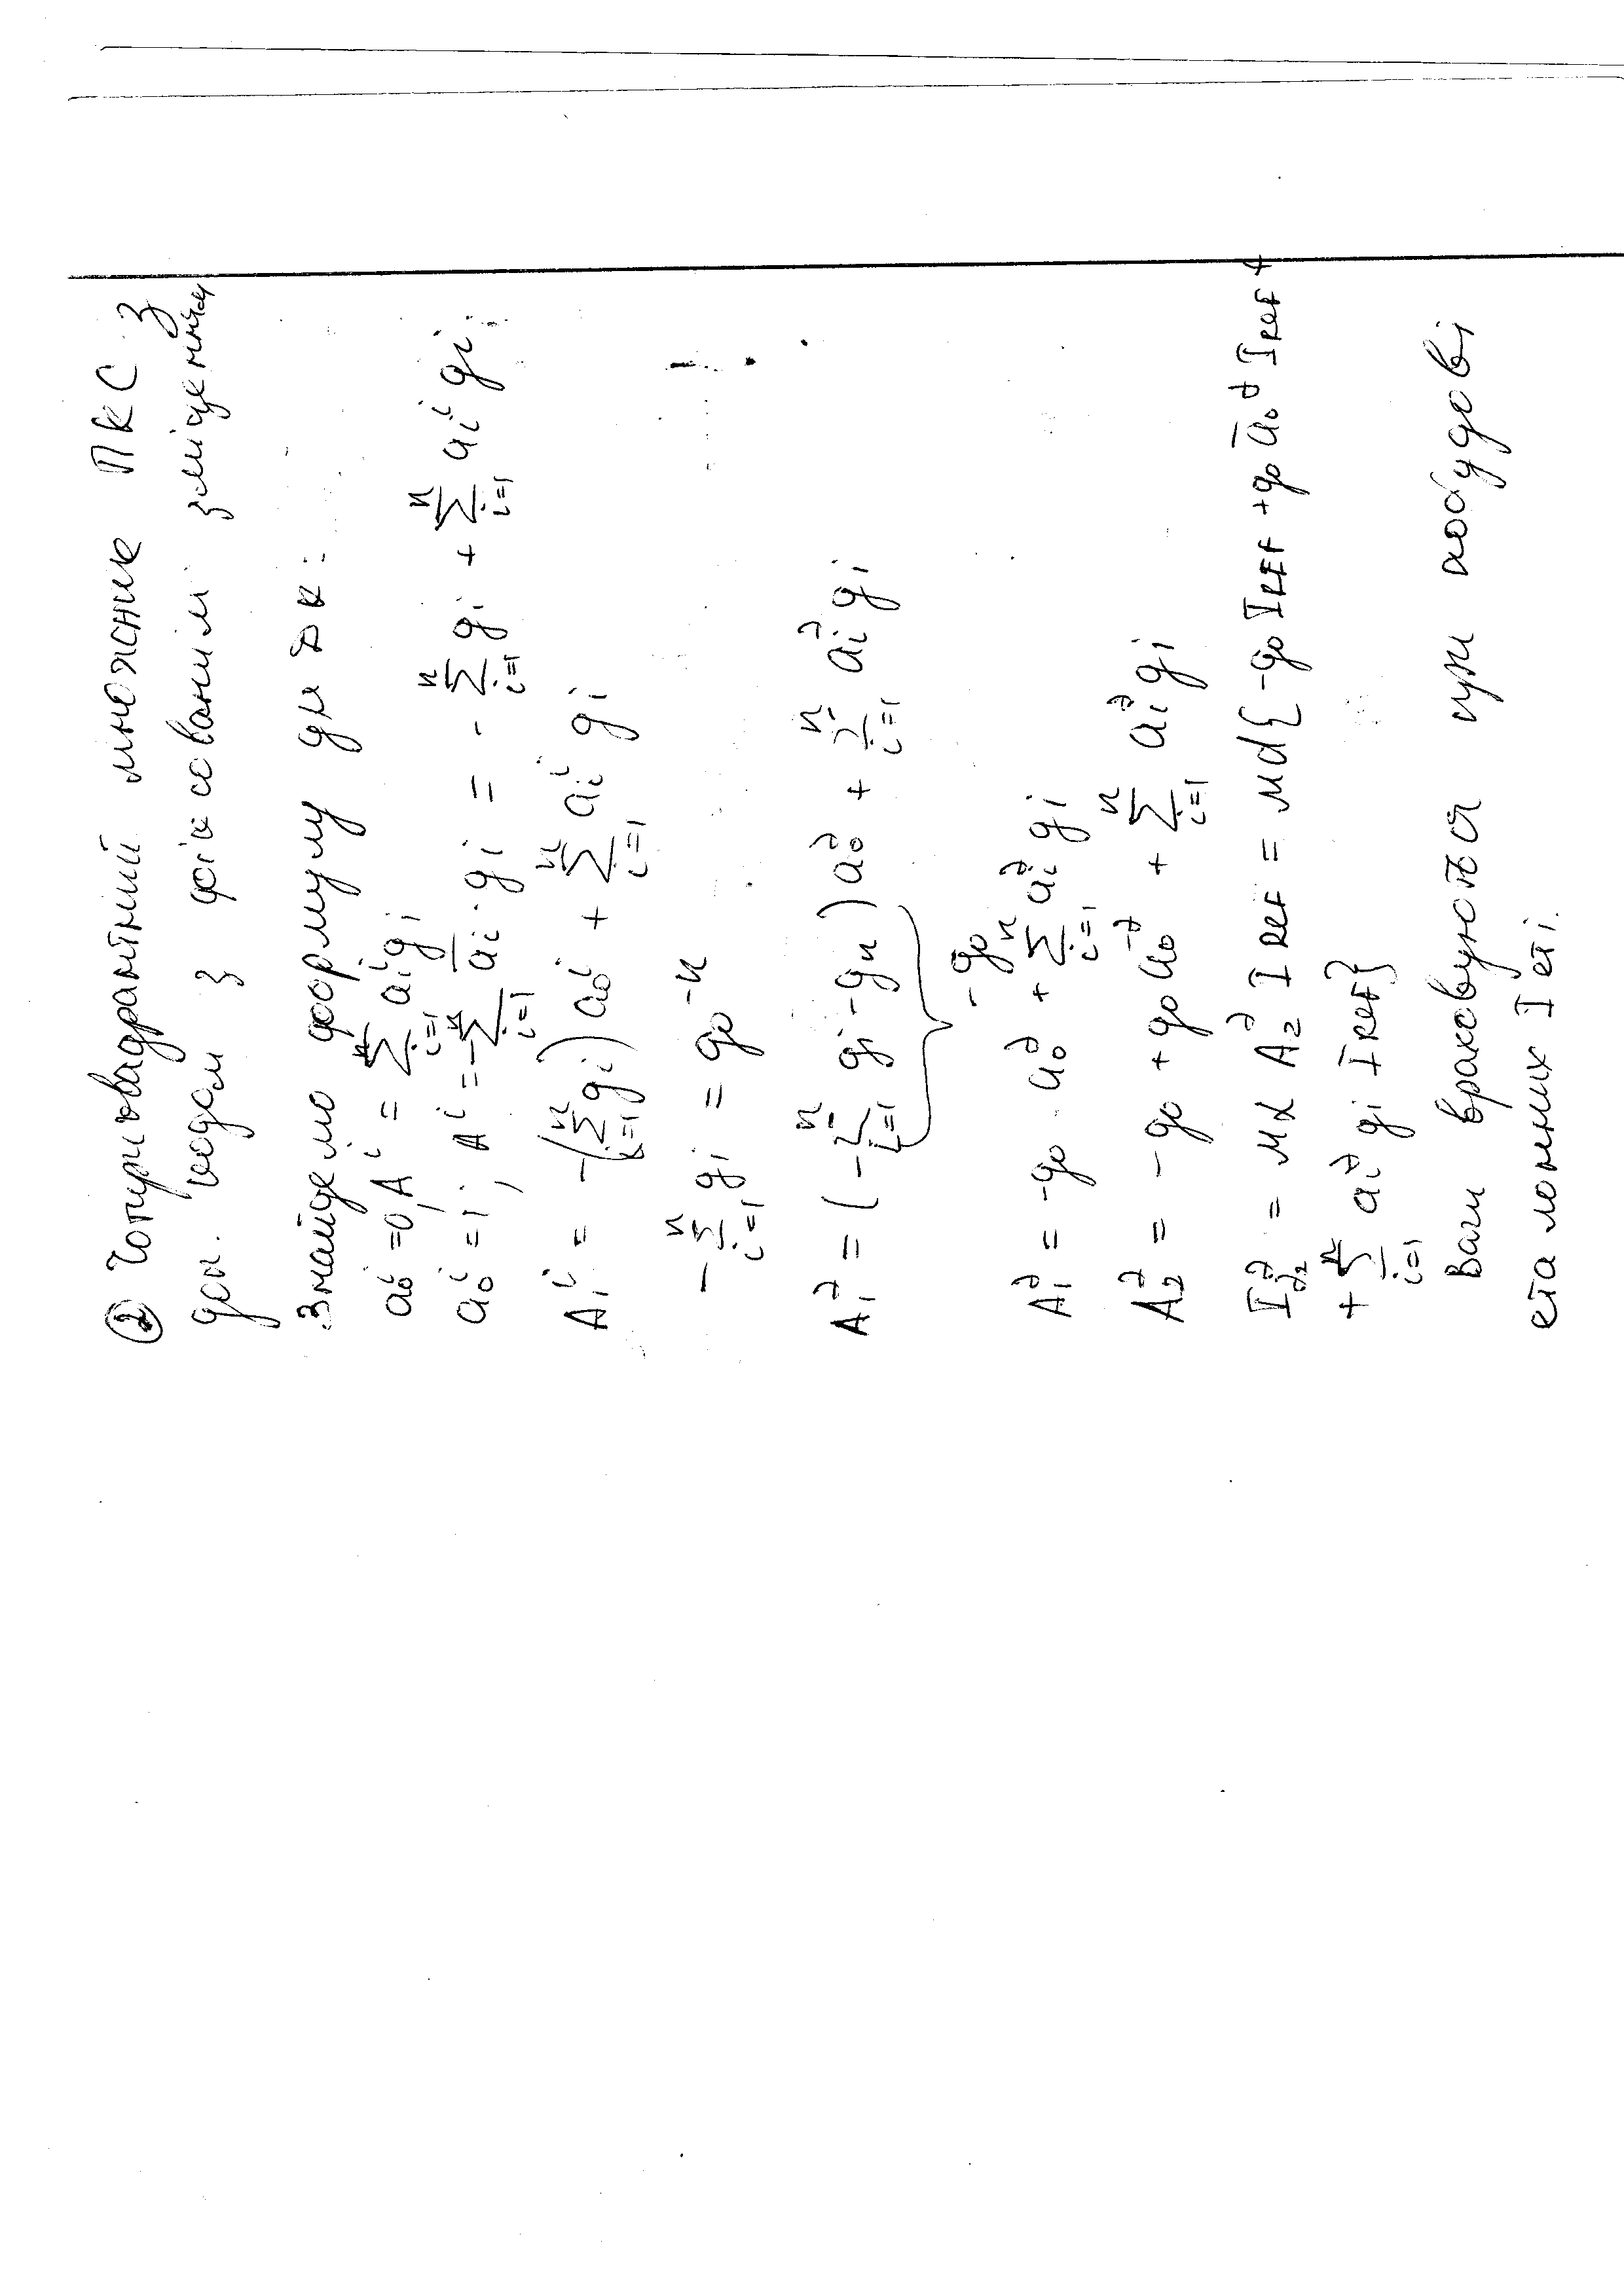 ② Чотириквадратний множник ПКС з
доп. кодом з фіксованим зміщенням
Знайдемо формулу для ДК:
a₀ⁱ = 0, Aⁱ = ∑ᵢ₌₁ⁿ aᵢⁱ gi
a₀ⁱ = 1; Aⁱ = -∑ᵢ₌₁ⁿ a̅ᵢ · gi = -∑ᵢ₌₁ⁿ gi + ∑ᵢ₌₁ⁿ aᵢⁱ gi
A₁ⁱ = -(∑ᵢ₌₁ⁿ gi) a₀ⁱ + ∑ᵢ₌₁ⁿ aᵢⁱ gi
-∑ᵢ₌₁ⁿ gi = g₀⁻ⁿ
A₁^∂ = (-∑ᵢ₌₁ⁿ gi - gn) a₀^∂ + ∑ᵢ₌₁ⁿ aᵢ^∂ gi
-g₀
A₁^∂ = -g₀ · a₀^∂ + ∑ᵢ₌₁ⁿ aᵢ^∂ gi
A₂^∂ = -g₀ + g₀ a̅₀^∂ + ∑ᵢ₌₁ⁿ aᵢ^∂ gi
I^∂₂ = Md A₂^∂ I REF = Md{-g₀ I REF + g₀ a̅₀^∂ I REF +
+ ∑ᵢ₌₁ⁿ aᵢ^∂ gi I REF}
Ваги враховуються при побудові
еталонних I еті.